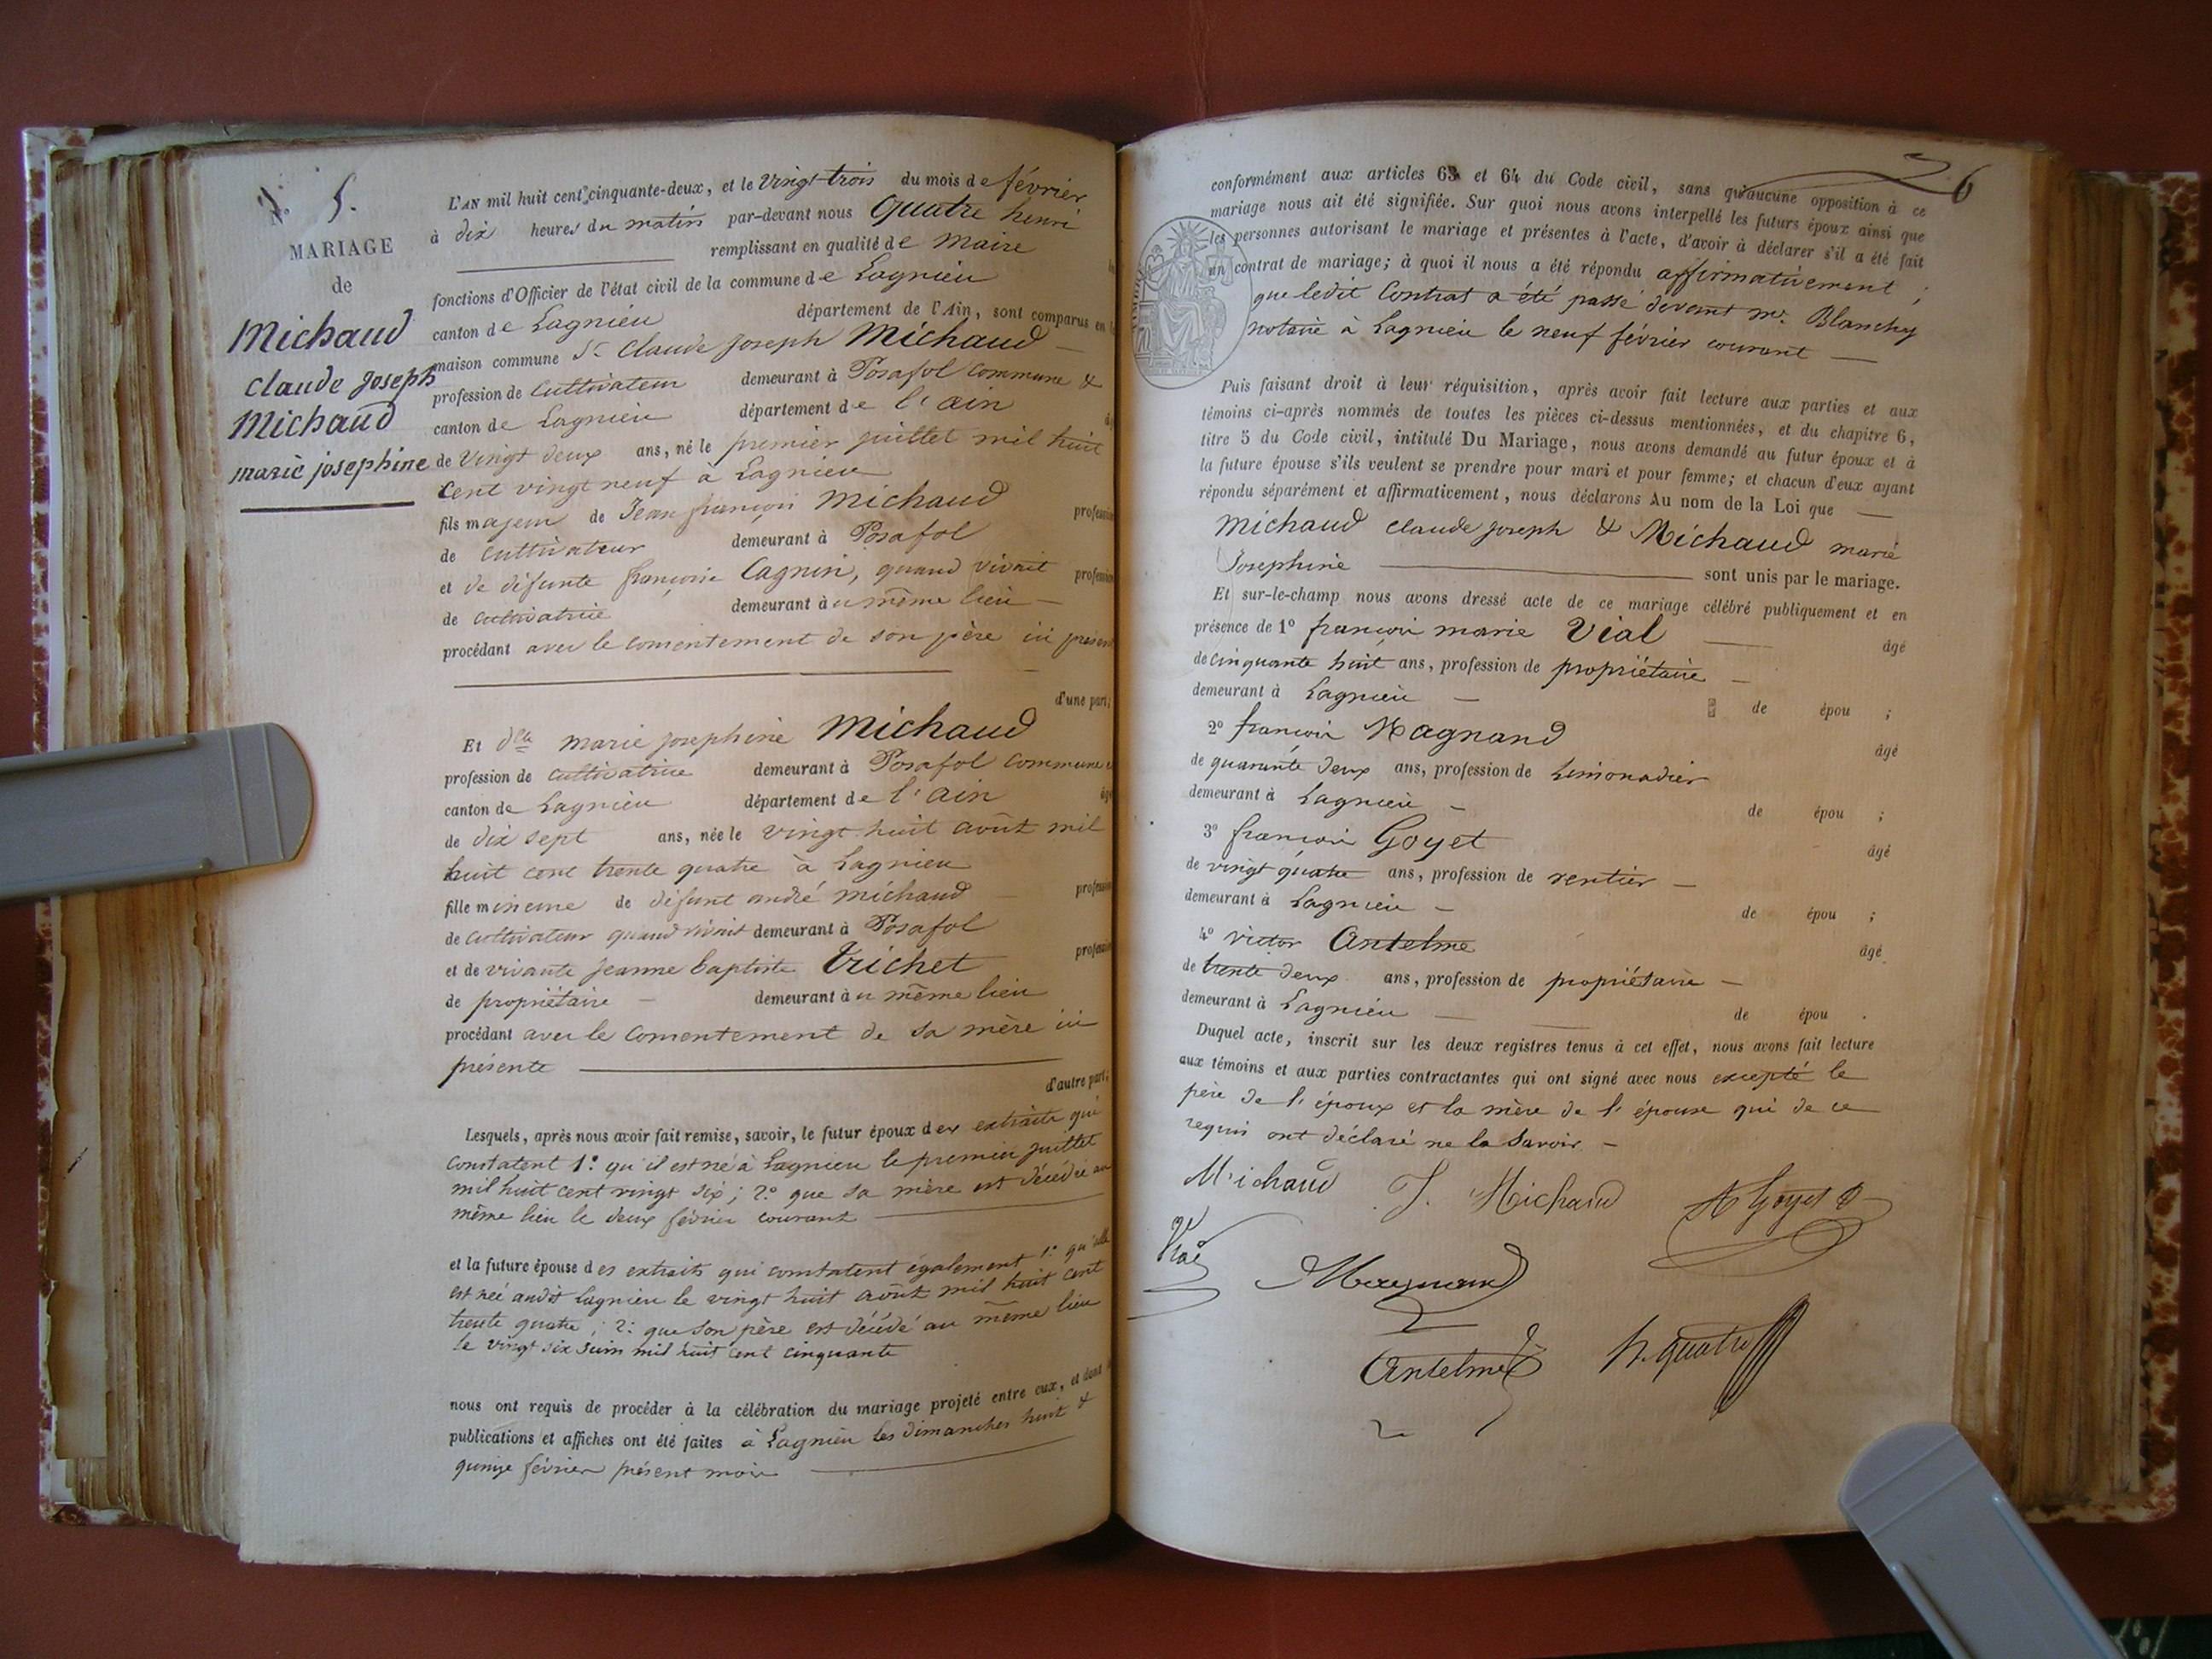 N° 5.
MARIAGE
de
Michaud
Claude Joseph
Michaud
marie josephine
L'AN mil huit cent cinquante-deux, et le Vingt trois du mois de février
à dix heures du matin par-devant nous Quatre henri
remplissant en qualité de Maire
fonctions d'Officier de l'état civil de la commune de Lagnieu
canton de Lagnieu département de l'Ain, sont comparus en
maison commune Sr Claude Joseph Michaud
profession de Cultivateur demeurant à Posafol Commune &
canton de Lagnieu département de l'ain
de vingt deux ans, né le premier juillet mil huit
cent vingt neuf à Lagnieu
fils majeur de Jean françois Michaud profession
de cultivateur demeurant à Posafol
et de défunte françoise Cagnin, quand vivait profession
de cultivatrice demeurant au même lieu
procédant avec le consentement de son père ici présent
d'une part;
Et dlle marie josephine Michaud
profession de cultivatrice demeurant à Posafol Commune
canton de Lagnieu département de l'ain
de dix sept ans, née le vingt huit août mil
huit cent trente quatre à Lagnieu
fille mineure de défunt andré michaud profession
de cultivateur quand vivait demeurant à Posafol
et de vivante jeanne baptiste Trichet profession
de propriétaire demeurant au même lieu
procédant avec le consentement de sa mère ici
présente
d'autre part;
Lesquels, après nous avoir fait remise, savoir, le futur époux des extraits qui
constatent 1° qu'il est né à Lagnieu le premier juillet
mil huit cent vingt six; 2° que sa mère est décédée au
même lieu le deux février courant
et la future épouse des extraits qui constatent également 1° qu'elle
est née audit Lagnieu le vingt huit août mil huit cent
trente quatre; 2° que son père est décédé au même lieu
le vingt six juin mil huit cent cinquante
nous ont requis de procéder à la célébration du mariage projeté entre eux, et dont
publications et affiches ont été faites à Lagnieu les dimanches huit &
quinze février présent mois
6
conformément aux articles 63 et 64 du Code civil, sans qu'aucune opposition à ce
mariage nous ait été signifiée. Sur quoi nous avons interpellé les futurs époux ainsi que
les personnes autorisant le mariage et présentes à l'acte, d'avoir à déclarer s'il a été fait
un contrat de mariage; à quoi il nous a été répondu affirmativement;
que ledit Contrat a été passé devant Me Blanchy
notaire à Lagnieu le neuf février courant
Puis faisant droit à leur réquisition, après avoir fait lecture aux parties et aux
témoins ci-après nommés de toutes les pièces ci-dessus mentionnées, et du chapitre 6,
titre 5 du Code civil, intitulé Du Mariage, nous avons demandé au futur époux et à
la future épouse s'ils veulent se prendre pour mari et pour femme; et chacun d'eux ayant
répondu séparément et affirmativement, nous déclarons Au nom de la Loi que
Michaud Claude joseph & Michaud marie
Josephine sont unis par le mariage.
Et sur-le-champ nous avons dressé acte de ce mariage célébré publiquement et en
présence de 1° françois marie Vial âgé
de cinquante huit ans, profession de propriétaire
demeurant à Lagnieu de épou ;
2° françois Magnand âgé
de quarante deux ans, profession de Limonadier
demeurant à Lagnieu de épou ;
3° françois Goyet âgé
de vingt quatre ans, profession de rentier
demeurant à Lagnieu de épou ;
4° victor Antelme âgé
de trente deux ans, profession de propriétaire
demeurant à Lagnieu de épou .
Duquel acte, inscrit sur les deux registres tenus à cet effet, nous avons fait lecture
aux témoins et aux parties contractantes qui ont signé avec nous excepté le
père de l'époux et la mère de l'épouse qui de ce
requis ont déclaré ne le savoir
Michaud J. Michaud Goyet
Vial Magnand
Antelme h. quatre